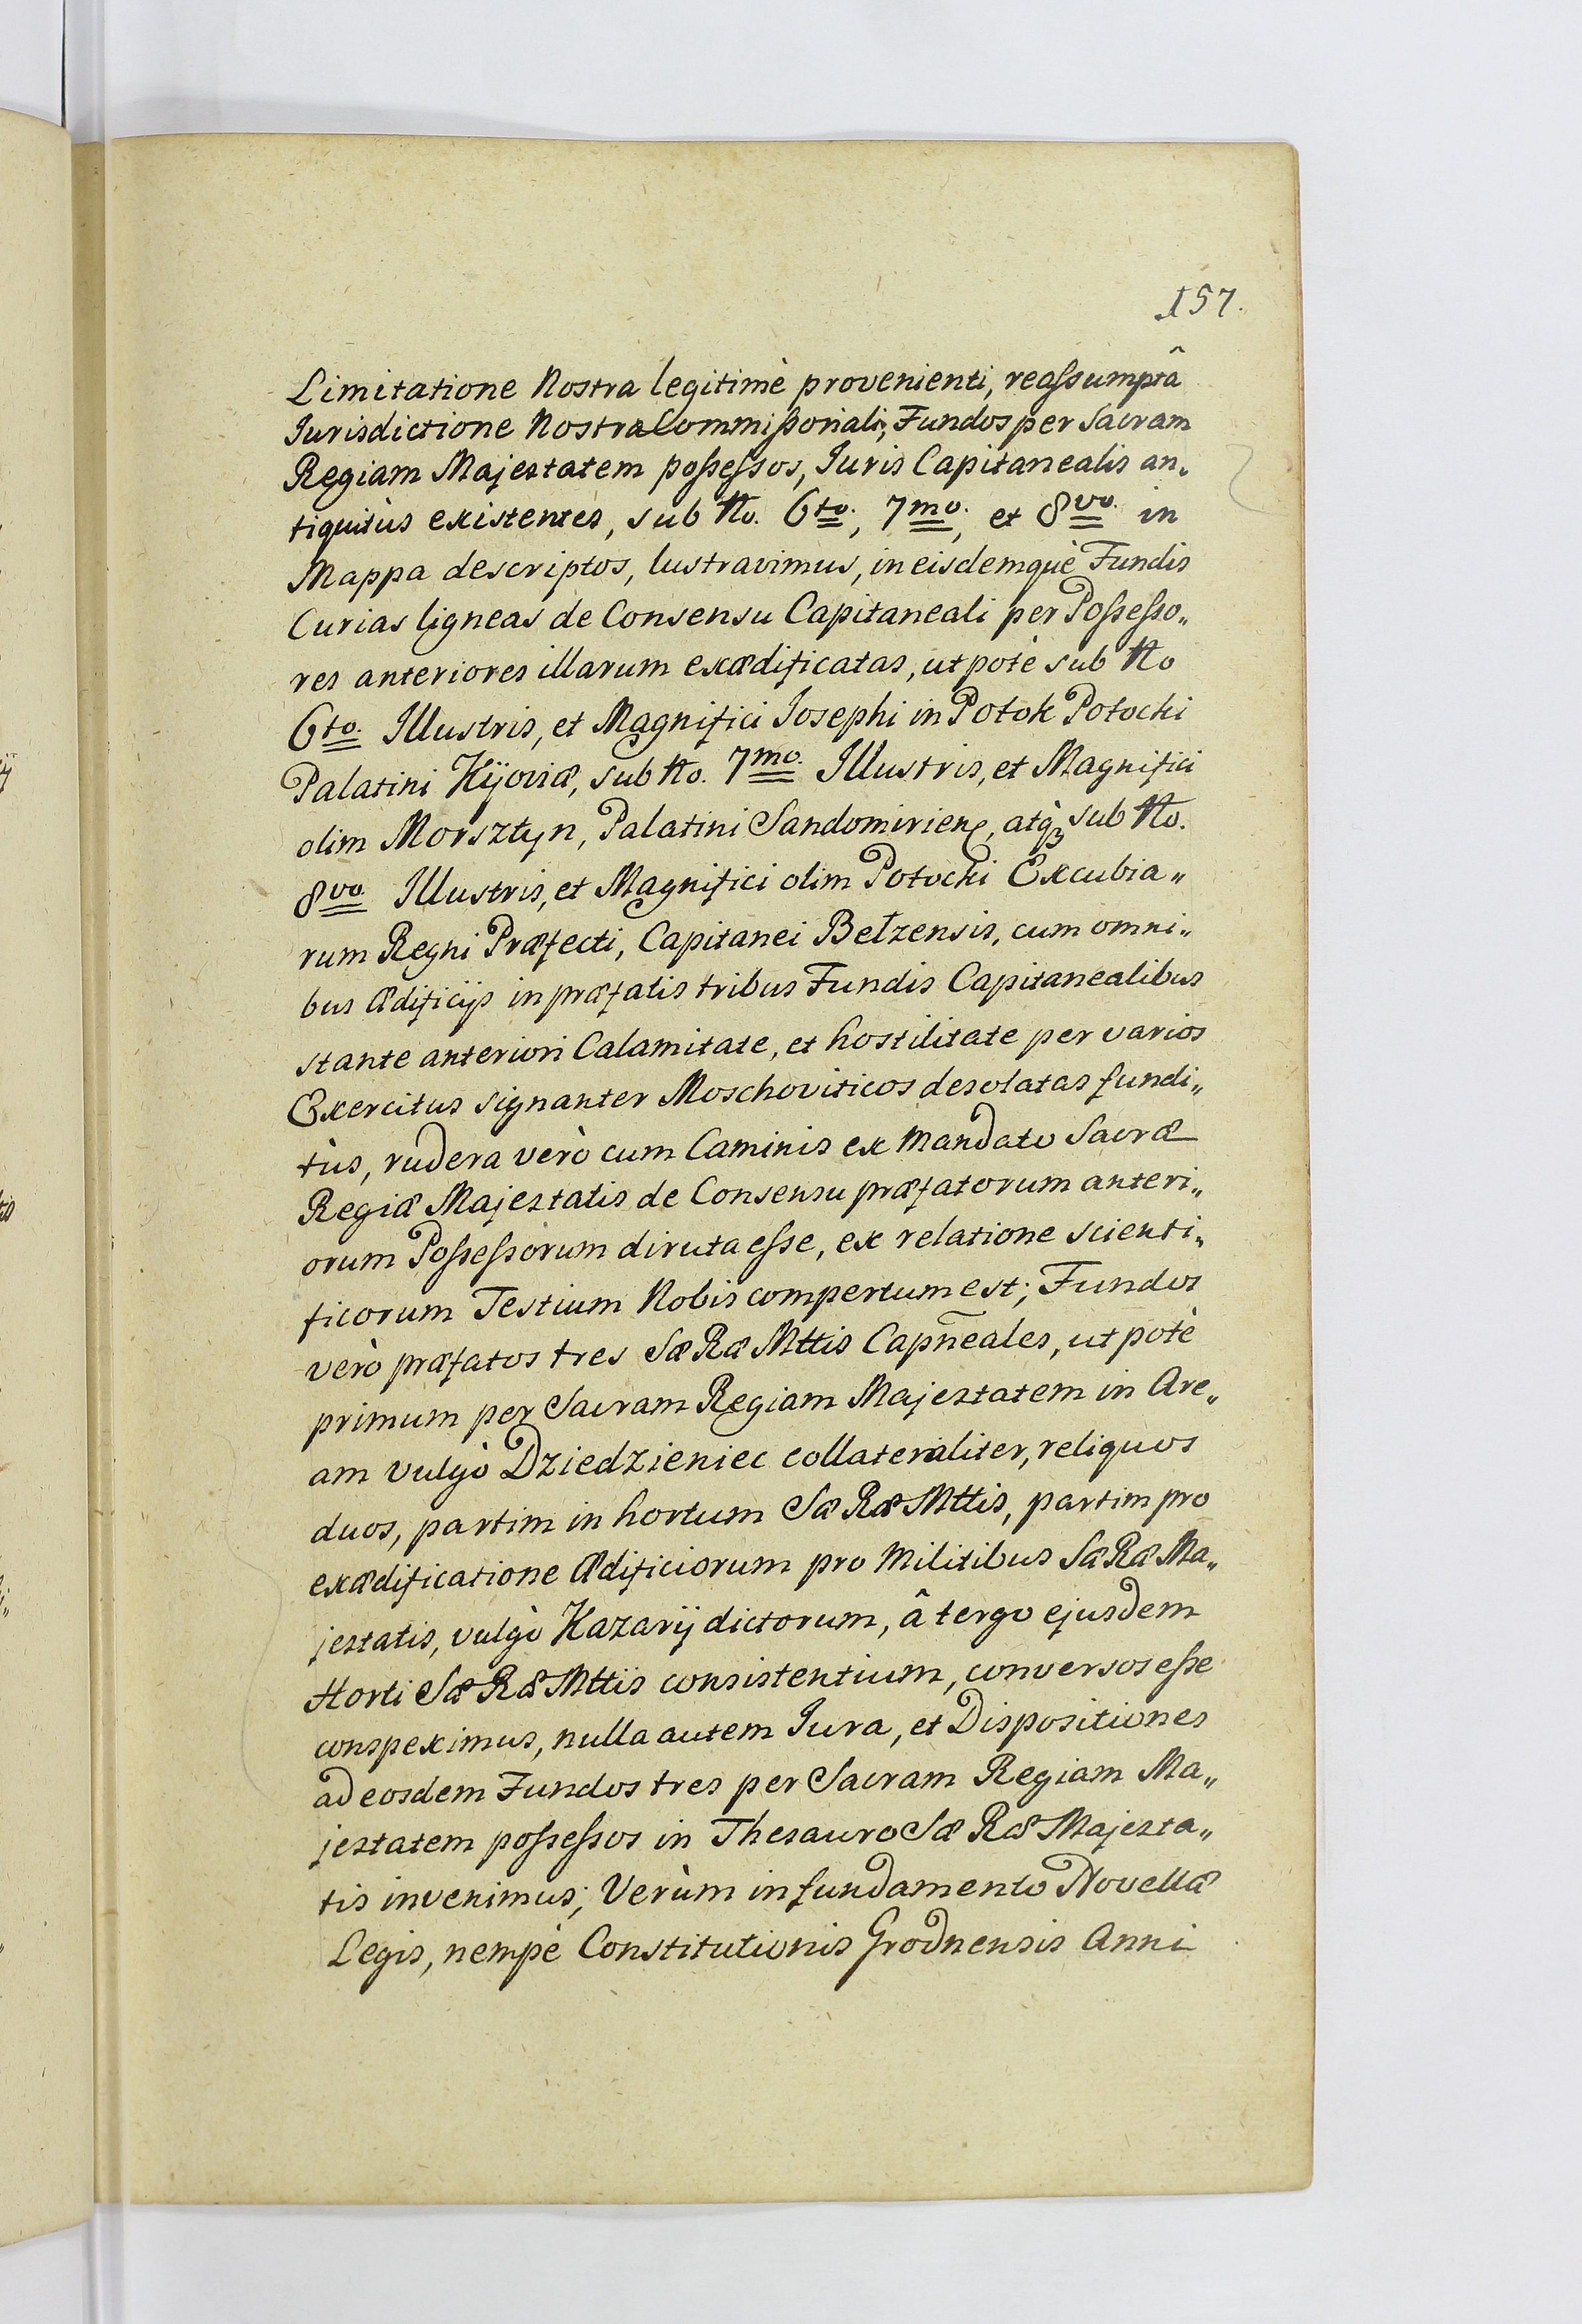 157.
Limitatione Nostra legitimè provenienti, reassumptâ
Jurisdictione Nostra Commissoriali, Fundos per Sacram
Regiam Majestatem possessos, Juris Capitanealis an„
tiquitùs existentes, sub No. 6to., 7mo., et 8vo. in
Mappa descriptos, lustravimus, in eisdemquè Fundis
Curias ligneas de Consensu Capitaneali per Possesso„
res anteriores illarum exædificatas, utpotè sub No
6to. Illustris, et Magnifici Josephi in Potok Potocki
Palatini Kijoviæ, sub No. 7mo. Illustris, et Magnifici
olim Morsztyn, Palatini Sandomirien, atq̀ꝫ sub No.
8vo. Illustris, et Magnifici olim Potocki Excubia„
rum Regni Præfecti, Capitanei Bełzensis, cum omni„
bus Ædificijs in præfatis tribus Fundis Capitanealibus
stante anteriori Calamitate, et hostilitate per varios
Exercitus signanter Moschoviticos desolatas fundi„
tùs, rudera verò cum Caminis ex Mandato Sacræ
Regiæ Majestatis de Consensu præfatorum anteri„
orum Possessorum diruta esse, ex relatione scienti„
ficorum Testium Nobis compertum est; Fundos
verò præfatos tres Sæ Ræ Mttis Capn̄eales, utpotè
primum per Sacram Regiam Majestatem in Are„
am vulgò Dziedzieniec collateraliter, reliquos
duos, partim in hortum Sæ Ræ Mttis, partim pro
exædificatione Ædificiorum pro Militibus Sæ Ræ Ma„
jestatis, vulgò Kazarÿ dictorum, â tergo ejusdem
Horti Sæ Ræ Mttis consistentium, conversos esse
conspeximus, nulla autem Jura, et Dispositiones
ad eosdem Fundos tres per Sacram Regiam Ma„
jestatem possessos in Thesauro Sæ Ræ Majesta„
tis invenimus; Verùm in fundamento Novellæ
Legis, nempè Constitutionis Grodnensis Anni